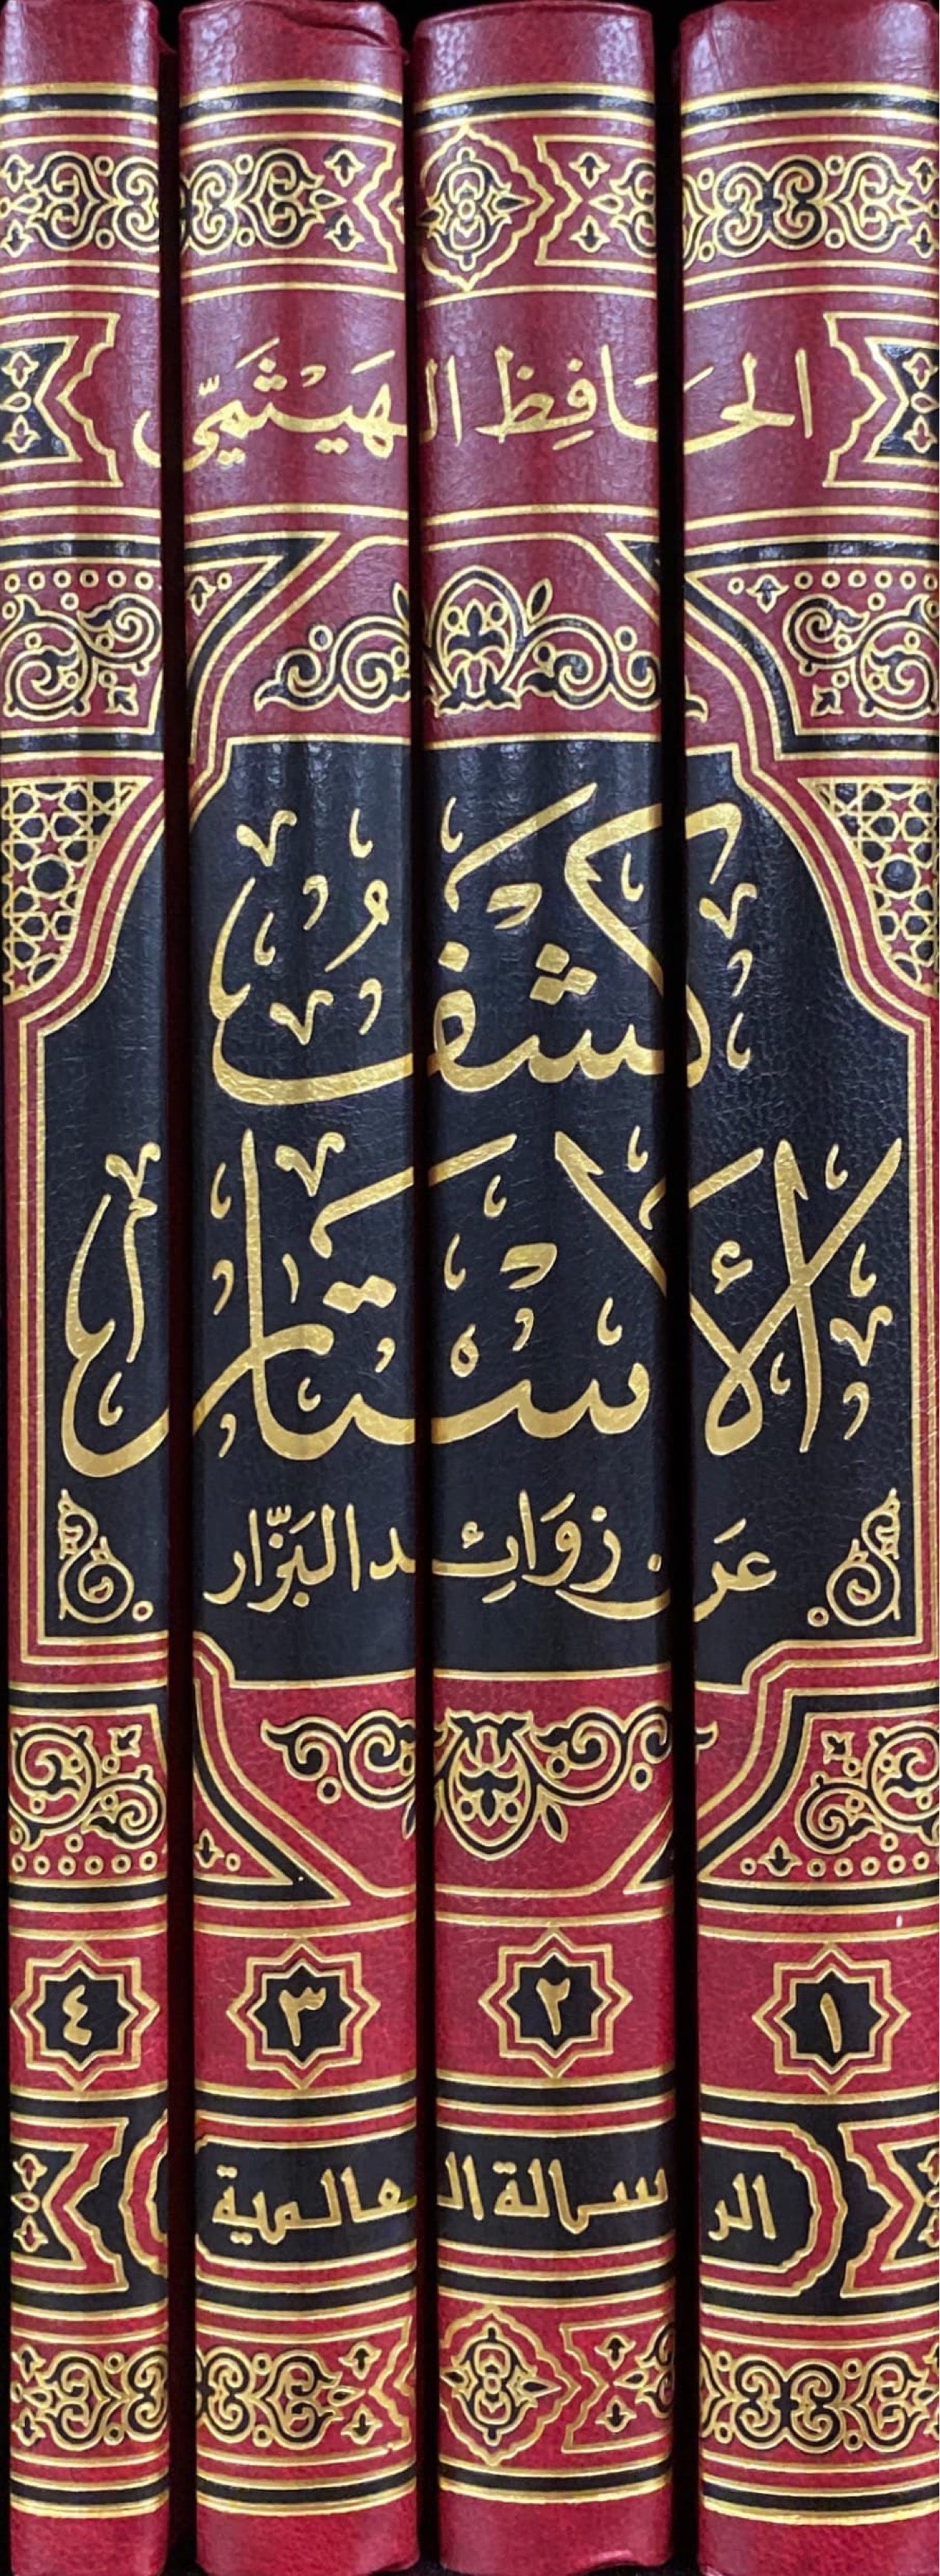 الحَافِظ الهَيْثَمِيّ
كَشْفُ
الأَسْتَار
عَن زَوَائِد البَزَّار
١ ٢ ٣ ٤
الرسالة العالمية